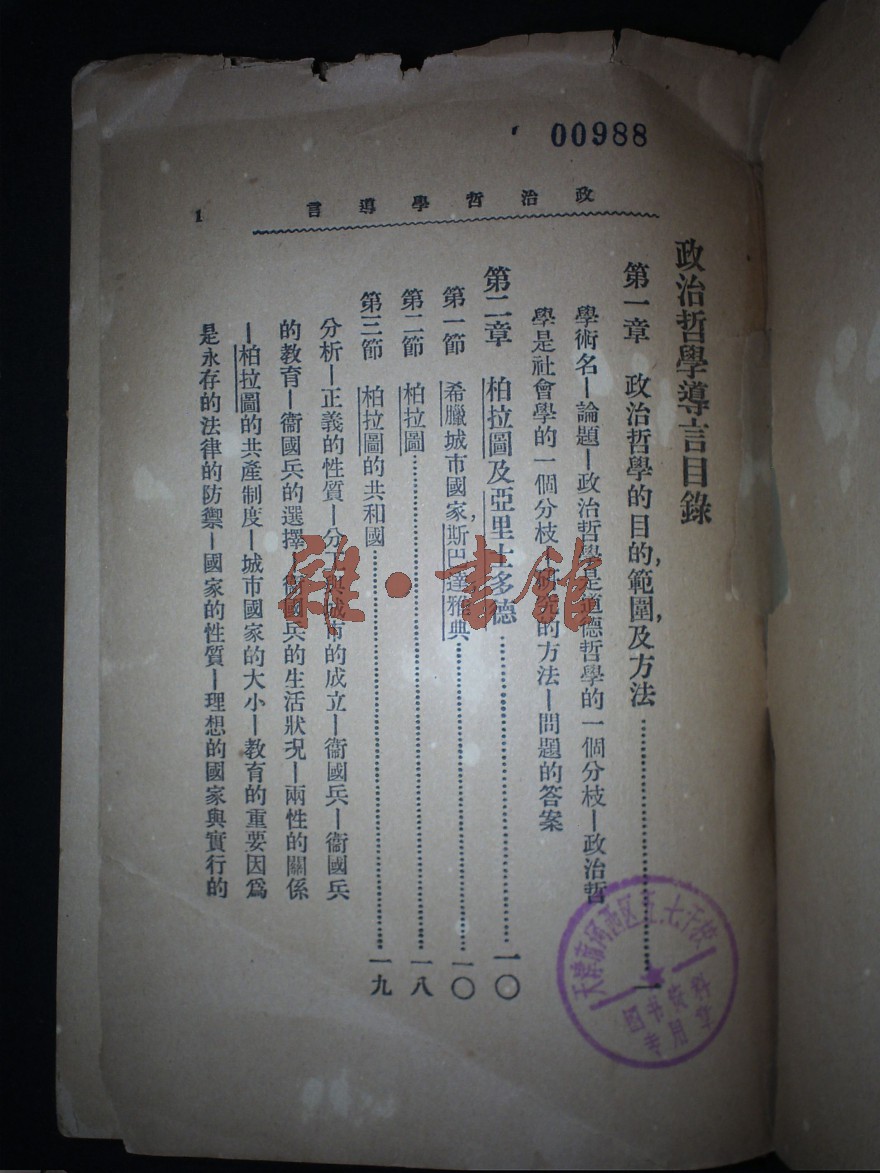 00988
政治哲學導言
1
政治哲學導言目錄
第一章 政治哲學的目的,範圍,及方法……一
學術名—論題—政治哲學是道德哲學的一個分枝—政治哲
學是社會學的一個分枝—研究的方法—問題的答案
第二章 柏拉圖及亞里士多德……一〇
第一節 希臘城市國家,斯巴達,雅典……一〇
第二節 柏拉圖……一八
第三節 柏拉圖的共和國……一九
分析—正義的性質—分工與城市的成立—衞國兵—衞國兵
的教育—衞國兵的選擇—衞國兵的生活狀況—兩性的關係
—柏拉圖的共產制度—城市國家的大小—教育的重要因爲
是永存的法律的防禦—國家的性質—理想的國家與實行的
雜·書館
天津市河西区五七干校
图书资料
专用章